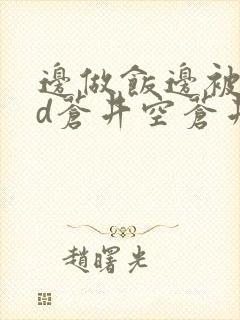 邊做飯邊被
d蒼井空蒼井
趙曙光